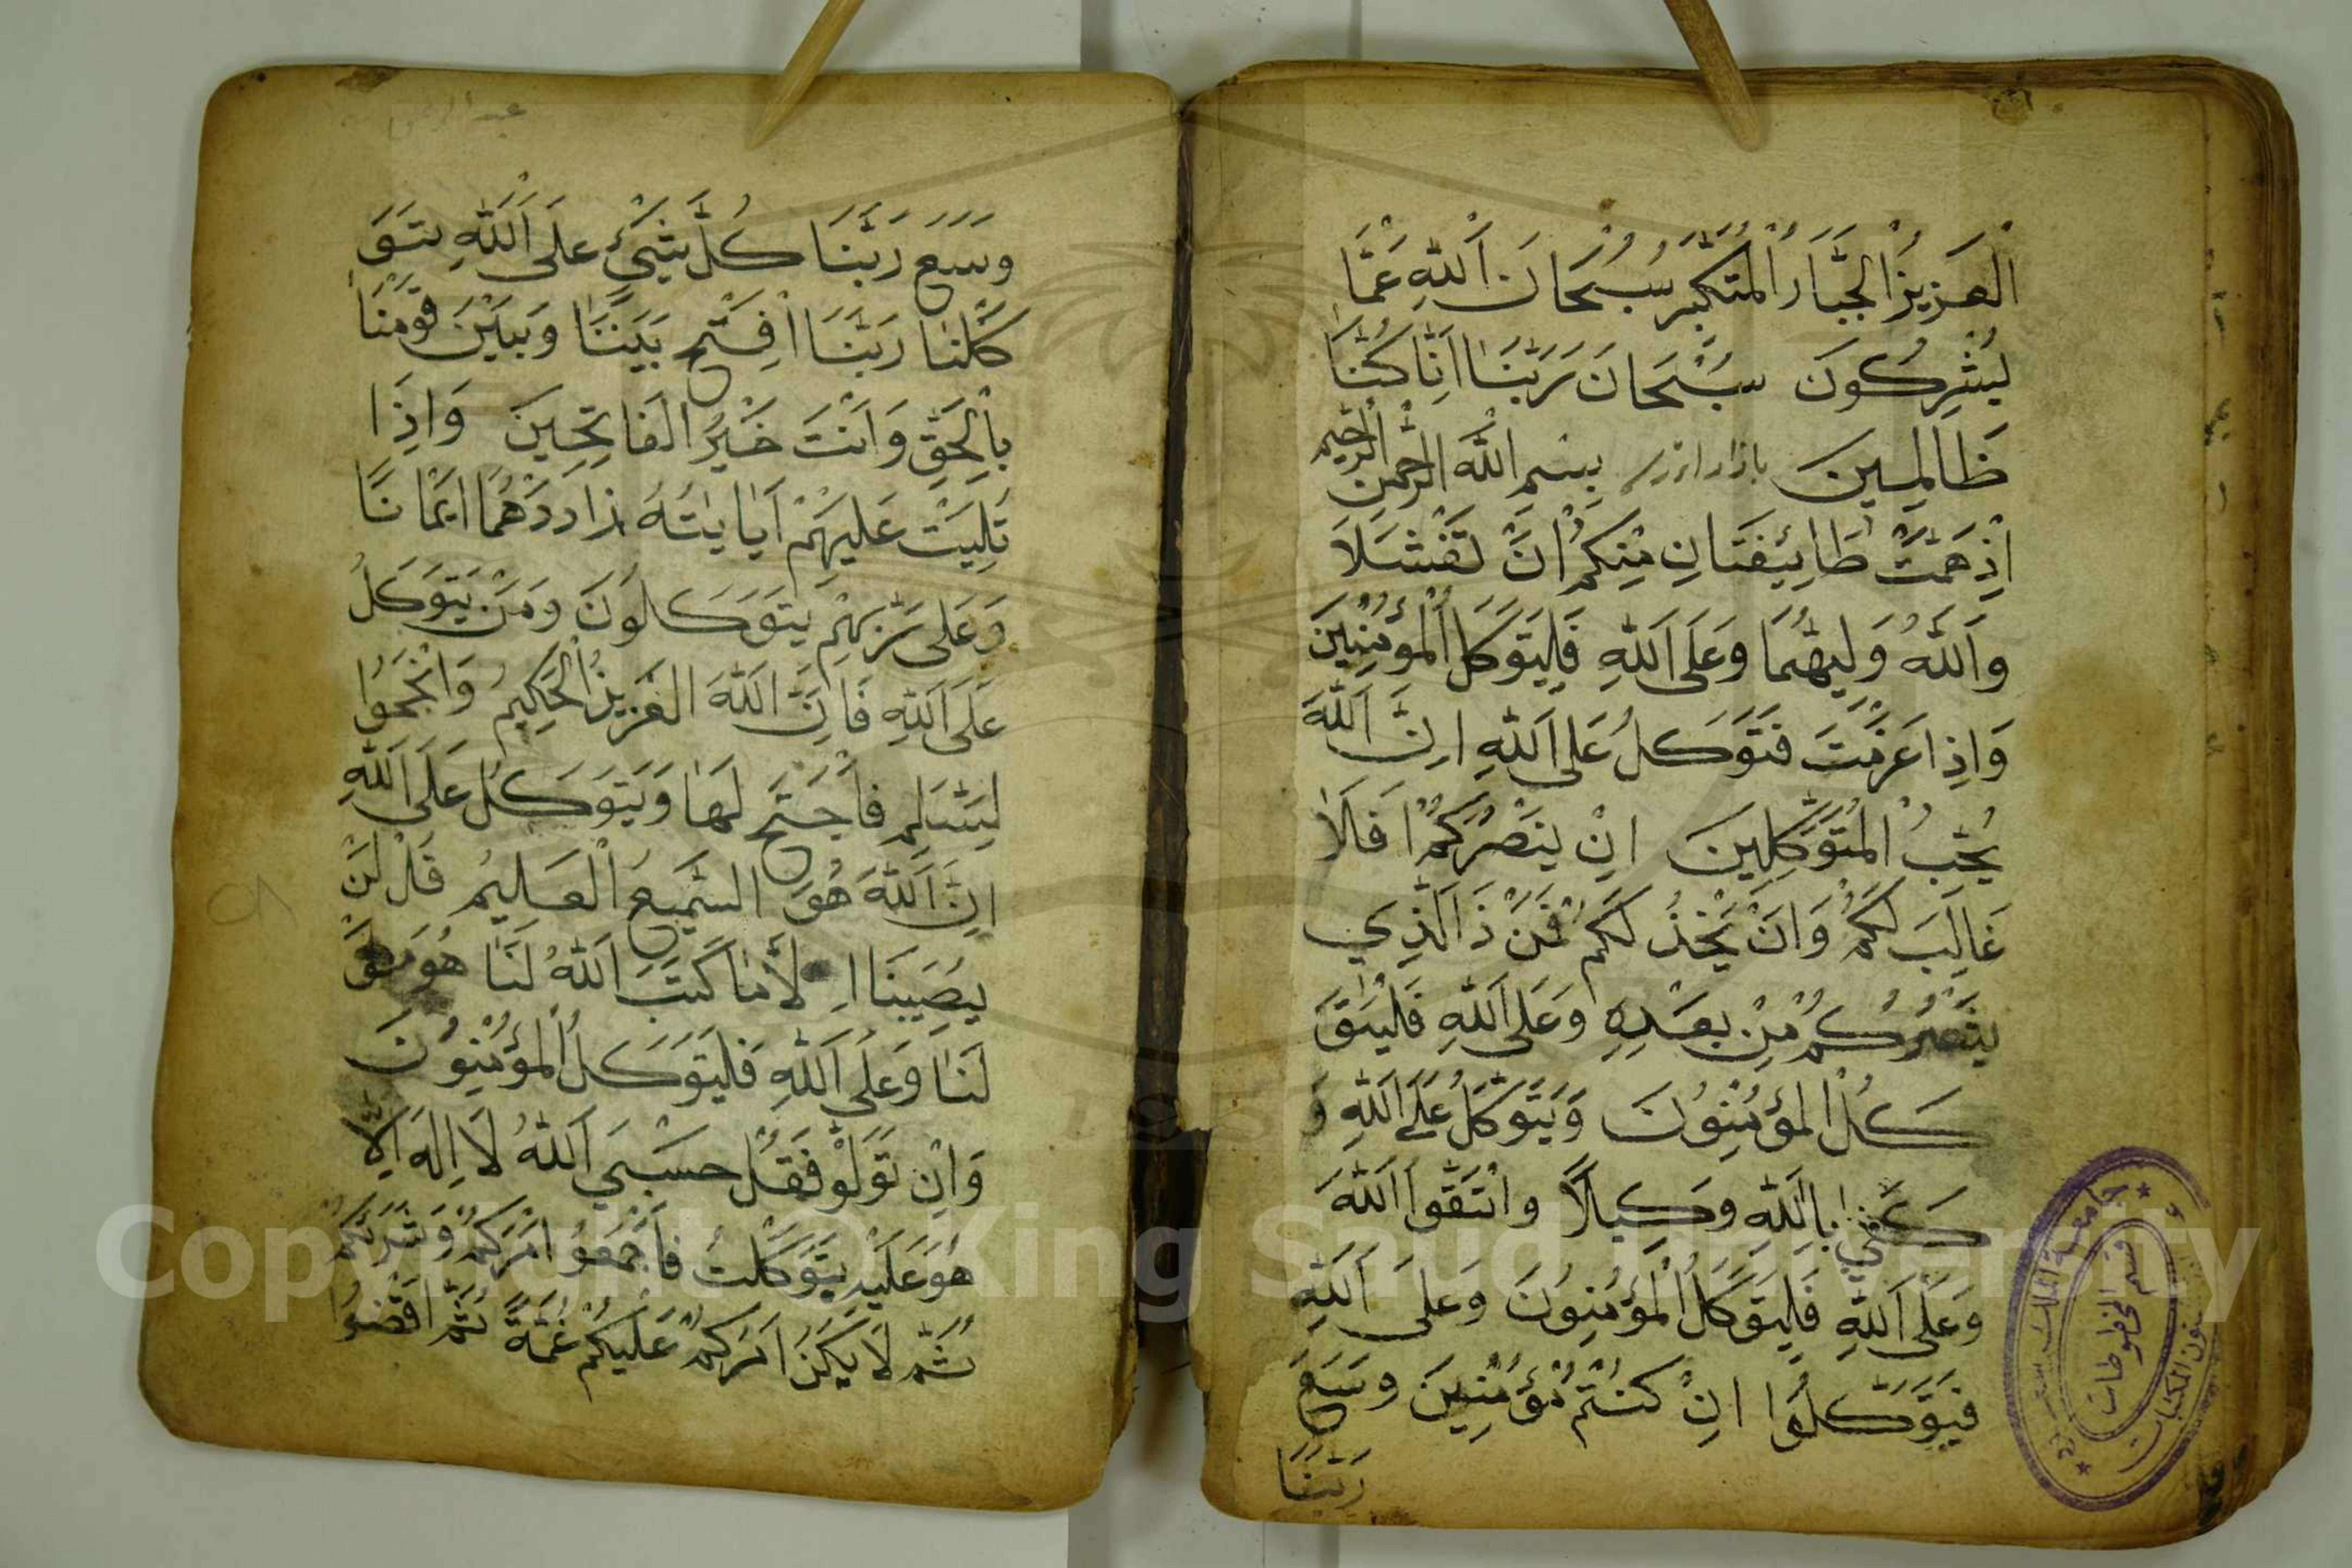 الْعَزِيزُ الْجَبَّارُ الْمُتَكَبِّرُ سُبْحَانَ اَللّٰهِ عَمَّا
يُشْرِكُونَ سُبْحَانَ رَبَّنَا اِنَّا كُنَّا
ظَالِمِينَ بِسْمِ اللّٰهِ الرَّحْمٰنِ الرَّحِيمِ
اِذْ هَمَّتْ طَائِيفَتَانِ مِنْكُمْ اَنْ تَفْشَلَا
وَاَللّٰهُ وَلِيهُمَا وَعَلَى اَللّٰهِ فَلِيَتَوَكَّلِ الْمُؤْمِنِينَ
وَاِذَا عَزَمْتَ فَتَوَكَّلْ عَلَى اَللّٰهِ اِنَّ اَللّٰهَ
يُحِبُّ الْمُتَوَكِّلِينَ اِنْ يَنْصُرْكُمْ ا فَلَا
غَالِبَ لَكُمْ وَاَنْ يَخْذُلَكُمْ فَمَنْ ذَالَّذِي
يَنْصُرُكُمْ مِنْ بَعْدِهِ وَعَلَى اَللّٰهِ فَلْيَتَوَ
كَّلِ الْمُؤْمِنُونَ وَيَتَوَكَّلْ عَلَى اَللّٰهِ وَ
كَفَى بِاللّٰهِ وَكِيلًا وَاتَّقُوا اَللّٰهَ
وَعَلَى اَللّٰهِ فَلِيَتَوَكَّلِ الْمُؤْمِنُونَ وَعَلَى اَللّٰهِ
فَيَتَوَكَّلُوا اِنْ كُنْتُمْ مُؤْمِنِينَ وَسِعَ
رَبَّنَا
وَسِعَ رَبَّنَا كُلَّ شَيْئٍ عَلَى اَللّٰهِ يتَوَ
كَّلْنَا رَبَّنَا افْتَحْ بَيْنَنَا وَبَيْنَ قَوْمِنَا
بِالْحَقِّ وَاَنْتَ خَيْرُ الْفَاتِحِينَ وَاِذَا
تُلِيَتْ عَلَيْهِمْ اَيَايٰتُهُ زَادَدْهُمْ اِيْمَانًا
وَعَلَى رَبِّهِمْ يَتَوَكَّلُونَ وَمَنْ يَتَوَكَّلْ
عَلَى اَللّٰهِ فَاِنَّ اَللّٰهَ الْعَزِيزُ الْحَكِيمُ وَانْجَمَوُا
لِسَّلِمِ فَاجْتَحْ لَهَا وَيَتَوَكَّلْ عَلَى اَللّٰهِ
اِنَّ اَللّٰهَ هُوَ السَّمِيعُ الْعَلِيمُ قُلْ لَنْ
يُصِيبَنَا اِلَّا مَا كَتَبَ اَللّٰهُ لَنَا هُوَ مَوْ
لَنَا وَعَلَى اَللّٰهِ فَلْيَتَوَكَّلِ الْمُؤْمِنُونَ
وَاِنْ تَوَلَّوْ فَقُلْ حَسْبِيَ اَللّٰهُ لَا اِلٰهَ اِلَّا
هُوَ عَلَيْهِ يَتَوَكَّلْتُ فَاجْمَعُوا اَمْرَكُمْ وَشُرَكَئكُمْ
ثُمَّ لَا يَكُنْ اَمْرُكُمْ عَلَيْكُمْ غُمَّةً ثُمَّ اقْضُوا
جامعة الملك سعود
قسم المخطوطات
شئون المكتبات
Copyright © King Saud University